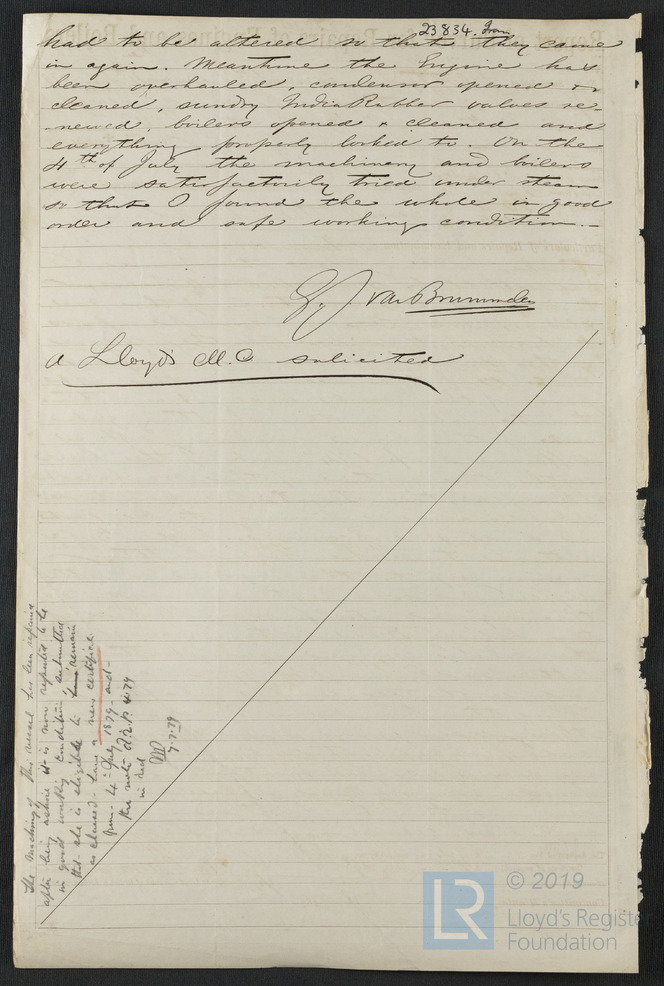 23834. Iron
had to be altered so that they came
in again. Meantime the Engine has
been overhauled, condenser opened &
cleaned, sundry IndiaRubber valves re-
-newed, boilers opened & cleaned and
everything properly looked to. On the
4th of July the machinery and boilers
were satisfactorily tried under steam
so that I found the whole in good
order and safe working condition.-
J. van Brummelen
a Lloyd's M.C. solicited
The machinery of this vessel has been repaired
after being ashore it is now reported to be
in good working condition, submitted
that she is eligible to remain
as classed - have a new certificate
from 4th July 1879 - and -
this note 4.79
in red
7.7.79
© 2019
LR
Lloyd's Registe
Foundation